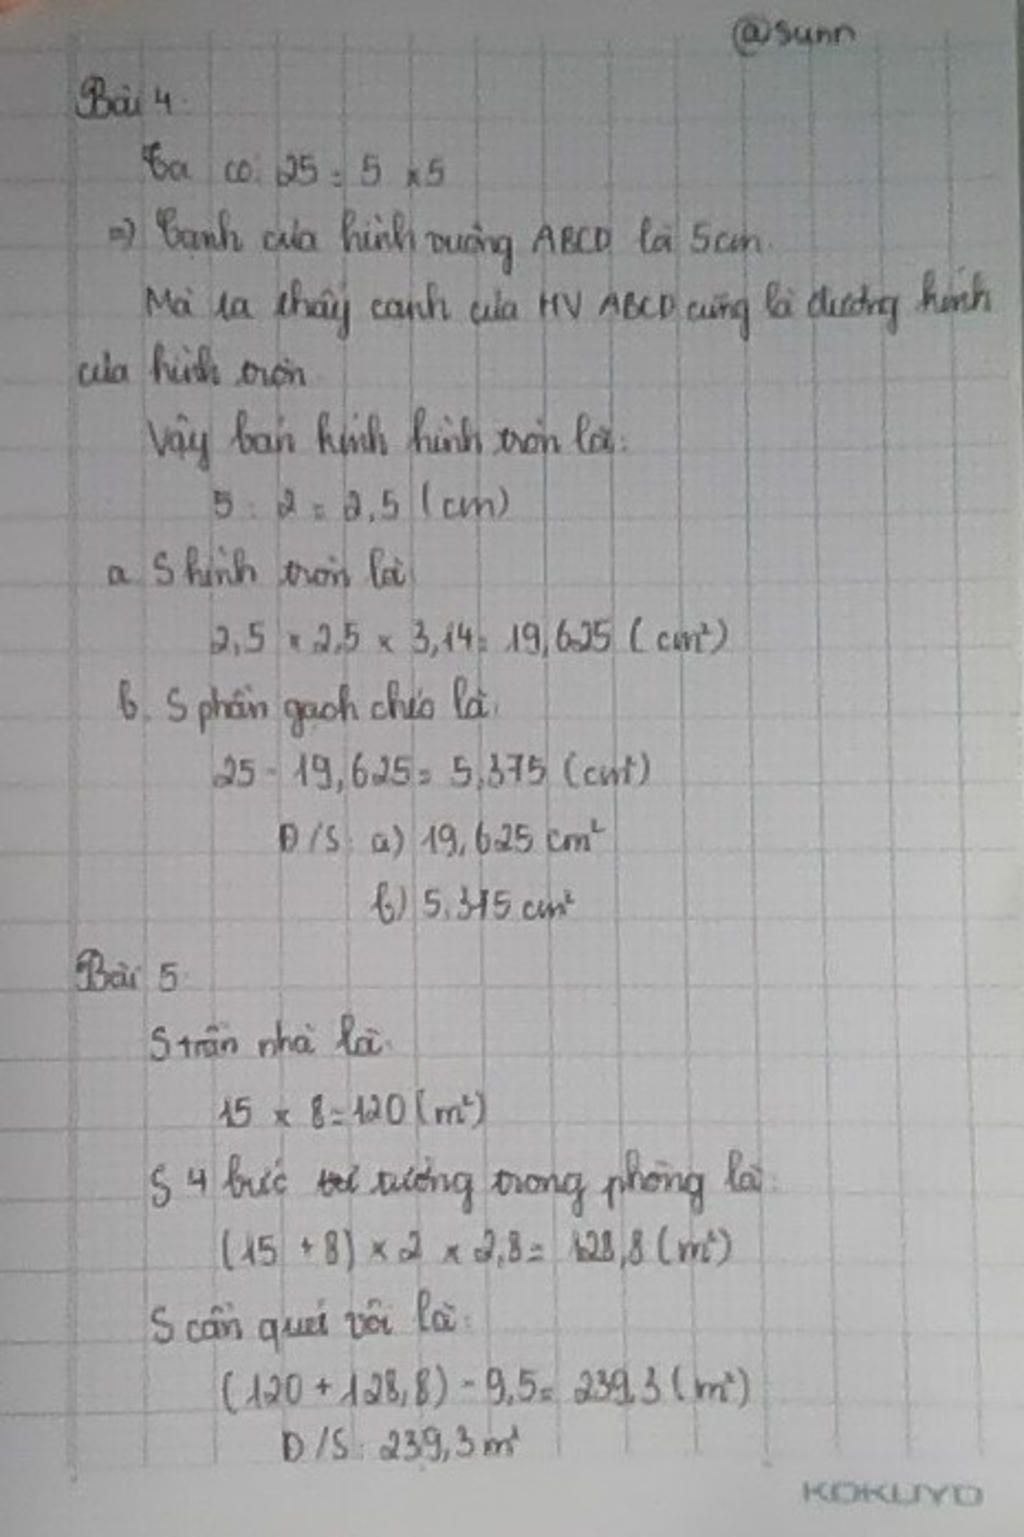 @sunn
Bài 4:
Ta có: 25 = 5 x 5
=> Cạnh của hình vuông ABCD là 5cm.
Mà ta thấy cạnh của HV ABCD cũng là đường kính
của hình tròn.
Vậy bán kính hình tròn là:
5 : 2 = 2,5 (cm)
a. S hình tròn là:
2,5 x 2,5 x 3,14 = 19,625 (cm²)
b. S phần gạch chéo là:
25 - 19,625 = 5,375 (cm²)
Đ/S: a) 19,625 cm²
b) 5,375 cm²
Bài 5:
S trần nhà là:
15 x 8 = 120 (m²)
S 4 bức tường trong phòng là:
(15 + 8) x 2 x 2,8 = 128,8 (m²)
S cần quét vôi là:
(120 + 128,8) - 9,5 = 239,3 (m²)
Đ/S: 239,3 m²
KOKUYO